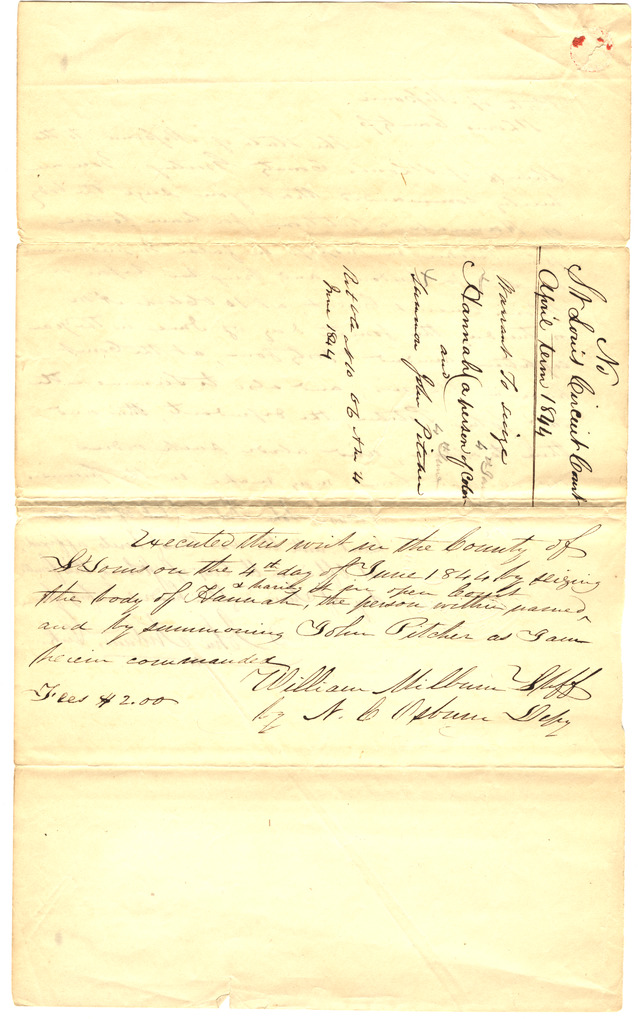 No
St Louis Circuit Court
April term 1844
Warrant To seize
Hannah (a person of Color
and
Summon John Pitcher
June 1844
Executed this writ in the County of
St Louis on the 4th day of June 1844 by seizing
the body of Hannah, the person within named
& having it in open Court
and by summoning John Pitcher as I am
herein commanded
Fees $2.00
William Milburn Shff
by N. C Osburn Depy